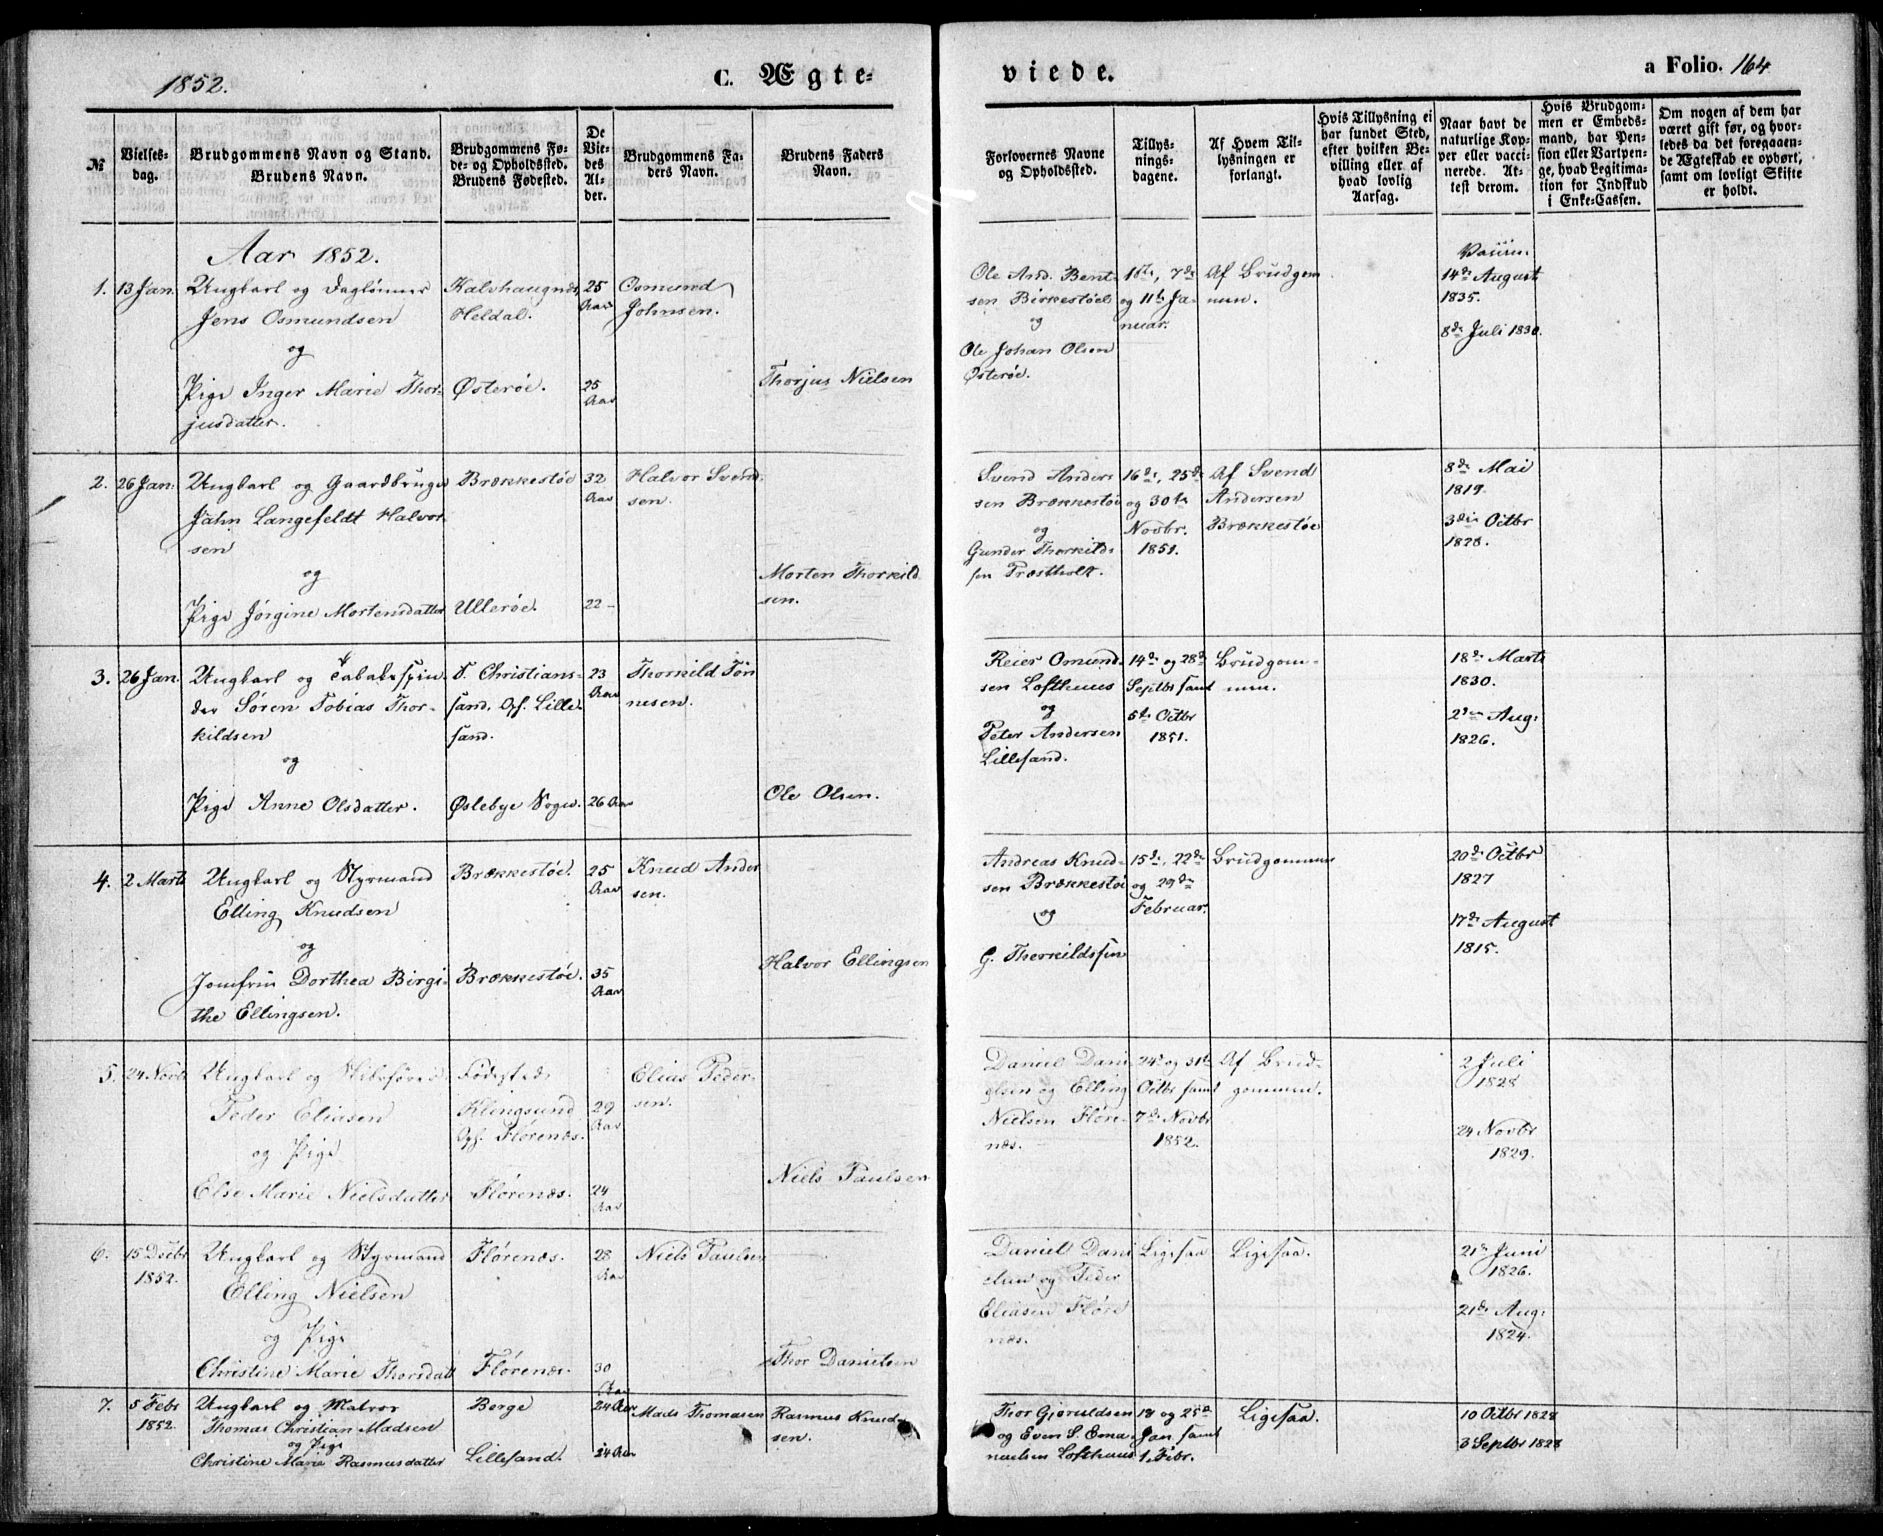 1852.
C. Ægte-
viede.
a Folio. 164
№
Vielses-
dag.
Brudgommens Navn og Stand.
Brudens Navn.
Brudgommens Fø-
de- og Opholdssted.
Brudens Fødested.
De
Vie-
des
Al-
der.
Brudgommens Fa-
ders Navn.
Brudens Faders
Navn.
Forlovernes Navne
og Opholdssted.
Tillys-
nings-
dagene.
Af Hvem Til-
lysningen er
forlangt.
Hvis Tillysning ei
har fundet Sted,
efter hvilken Be-
villing eller af
hvad lovlig
Aarsag.
Naar havt de
naturlige Kop-
per eller vacci-
nerede. At-
test derom.
Hvis Brudgom-
men er Embeds-
mand, har Pen-
sion eller Vartpen-
ge, hvad Legitima-
tion for Indskud
i Enke-Cassen.
Om nogen af dem har
været gift før, og hvor-
ledes da det foregaaen-
de Ægteskab er ophørt,
samt om lovligt Skifte
er holdt.
Aar 1852.
1. 13 Jan.
Ungkarl og Daglønner
Jens Osmundsen
og
Pige Inger Marie Thor-
jusdatter.
Kalvhaugnes,
Heldal.
Østerøe.
25
Aar
25
Aar
Osmund
Johnsen.
Thorjus Nielsen
Ole And. Bent-
sen Birkestøel
og
Ole Johan Olsen
Østerøe.
1ste, 7de
og 11te Ja-
nuar.
Af Brudgom-
men.
Vaccin.
14de August
1835.
8de Juli 1830.
2. 26 Jan.
Ungkarl og Gaardbruger
Jahn Langefeldt Halvor-
sen
og
Pige Jørgine Mortensdatter
Brækkestøe
Ullerøe.
32
Aar
22 –
Halvor Svend-
sen.
Morten Thorkild-
sen.
Svend Anders-
sen Brækkestøe
og
Gunder Thorkild-
sen Præstholt.
16de, 25de
og 30te
Novbr.
1851.
Af Svend
Andersen
Brækkestøe
8de Mai
1819.
3die Octbr
1828.
3. 26 Jan.
Ungkarl og Tabakspin-
der Søren Tobias Thor-
kildsen
og
Pige Anne Olsdatter.
F. Christians-
sand, Oph. Lille-
sand.
Øslebye Sogn.
23
Aar
26 Aar
Thorkild Tøn-
nesen.
Ole Olsen.
Reier Omund-
sen Lofthuus
og
Peter Andersen
Lillesand.
14de og 28de
Septbr samt
5te Octbr
1851.
Brudgom-
men.
18de Marts
1830.
2den Aug:
1826.
4. 2 Marts
Ungkarl og Styrmand
Elling Knudsen
og
Jomfru Dorthea Birgi-
the Ellingsen.
Brækkestøe.
Brækkestøe.
25
Aar
35
Aar
Knud Ander-
sen.
Halvor Ellingsen
Andreas Knud-
sen Brækkestøe
og
G. Thorkildssen
15de, 22de
og 29de
Februar.
Brudgommen
20de Octbr
1827
17de August
1815.
5. 24 Novbr
Ungkarl og
Peder Eliasen
og Pige
Else Marie Nielsdatter
Fødested
Klingsund
Oph. Flørenæs.
Flørenæs.
29
Aar
24
Aar
Elias Peder-
sen.
Niels Paulsen
Daniel Dani-
elsen og Elling
Nielsen Fløre-
næs.
24de og 31te
Octbr samt
7de Novbr
1852.
Af Brud-
gommen.
2 Juli
1828
24 Novbr
1829.
6. 15 Decbr
1852.
Ungkarl og Styrmand
Elling Nielsen
og Pige
Christine Marie Thorsdatt
Flørenæs.
Flørenæs.
28
Aar
30
Aar
Niels Paulsen
Thor Danielsen
Daniel Dani-
elsen og Peder
Eliasen Fløre-
næs.
Ligesaa
Ligesaa.
21de Juni
1826.
21de Aug:
1824.
7. 5 Febr
1852.
Ungkarl og Matros
Thomas Christian Madsen
og Pige
Christine Marie Rasmusdatter
Borge
Lillesand.
24 Aar
24 Aar
Mads Thomasen
Rasmus Knud-
sen.
Thor Gjeruldsen
og Even S. Ema-
nuelsen Lofthuus
18 og 25de
Jan. samt
1. Febr.
Ligesaa.
10 Octbr 1828
3 Septbr 1828